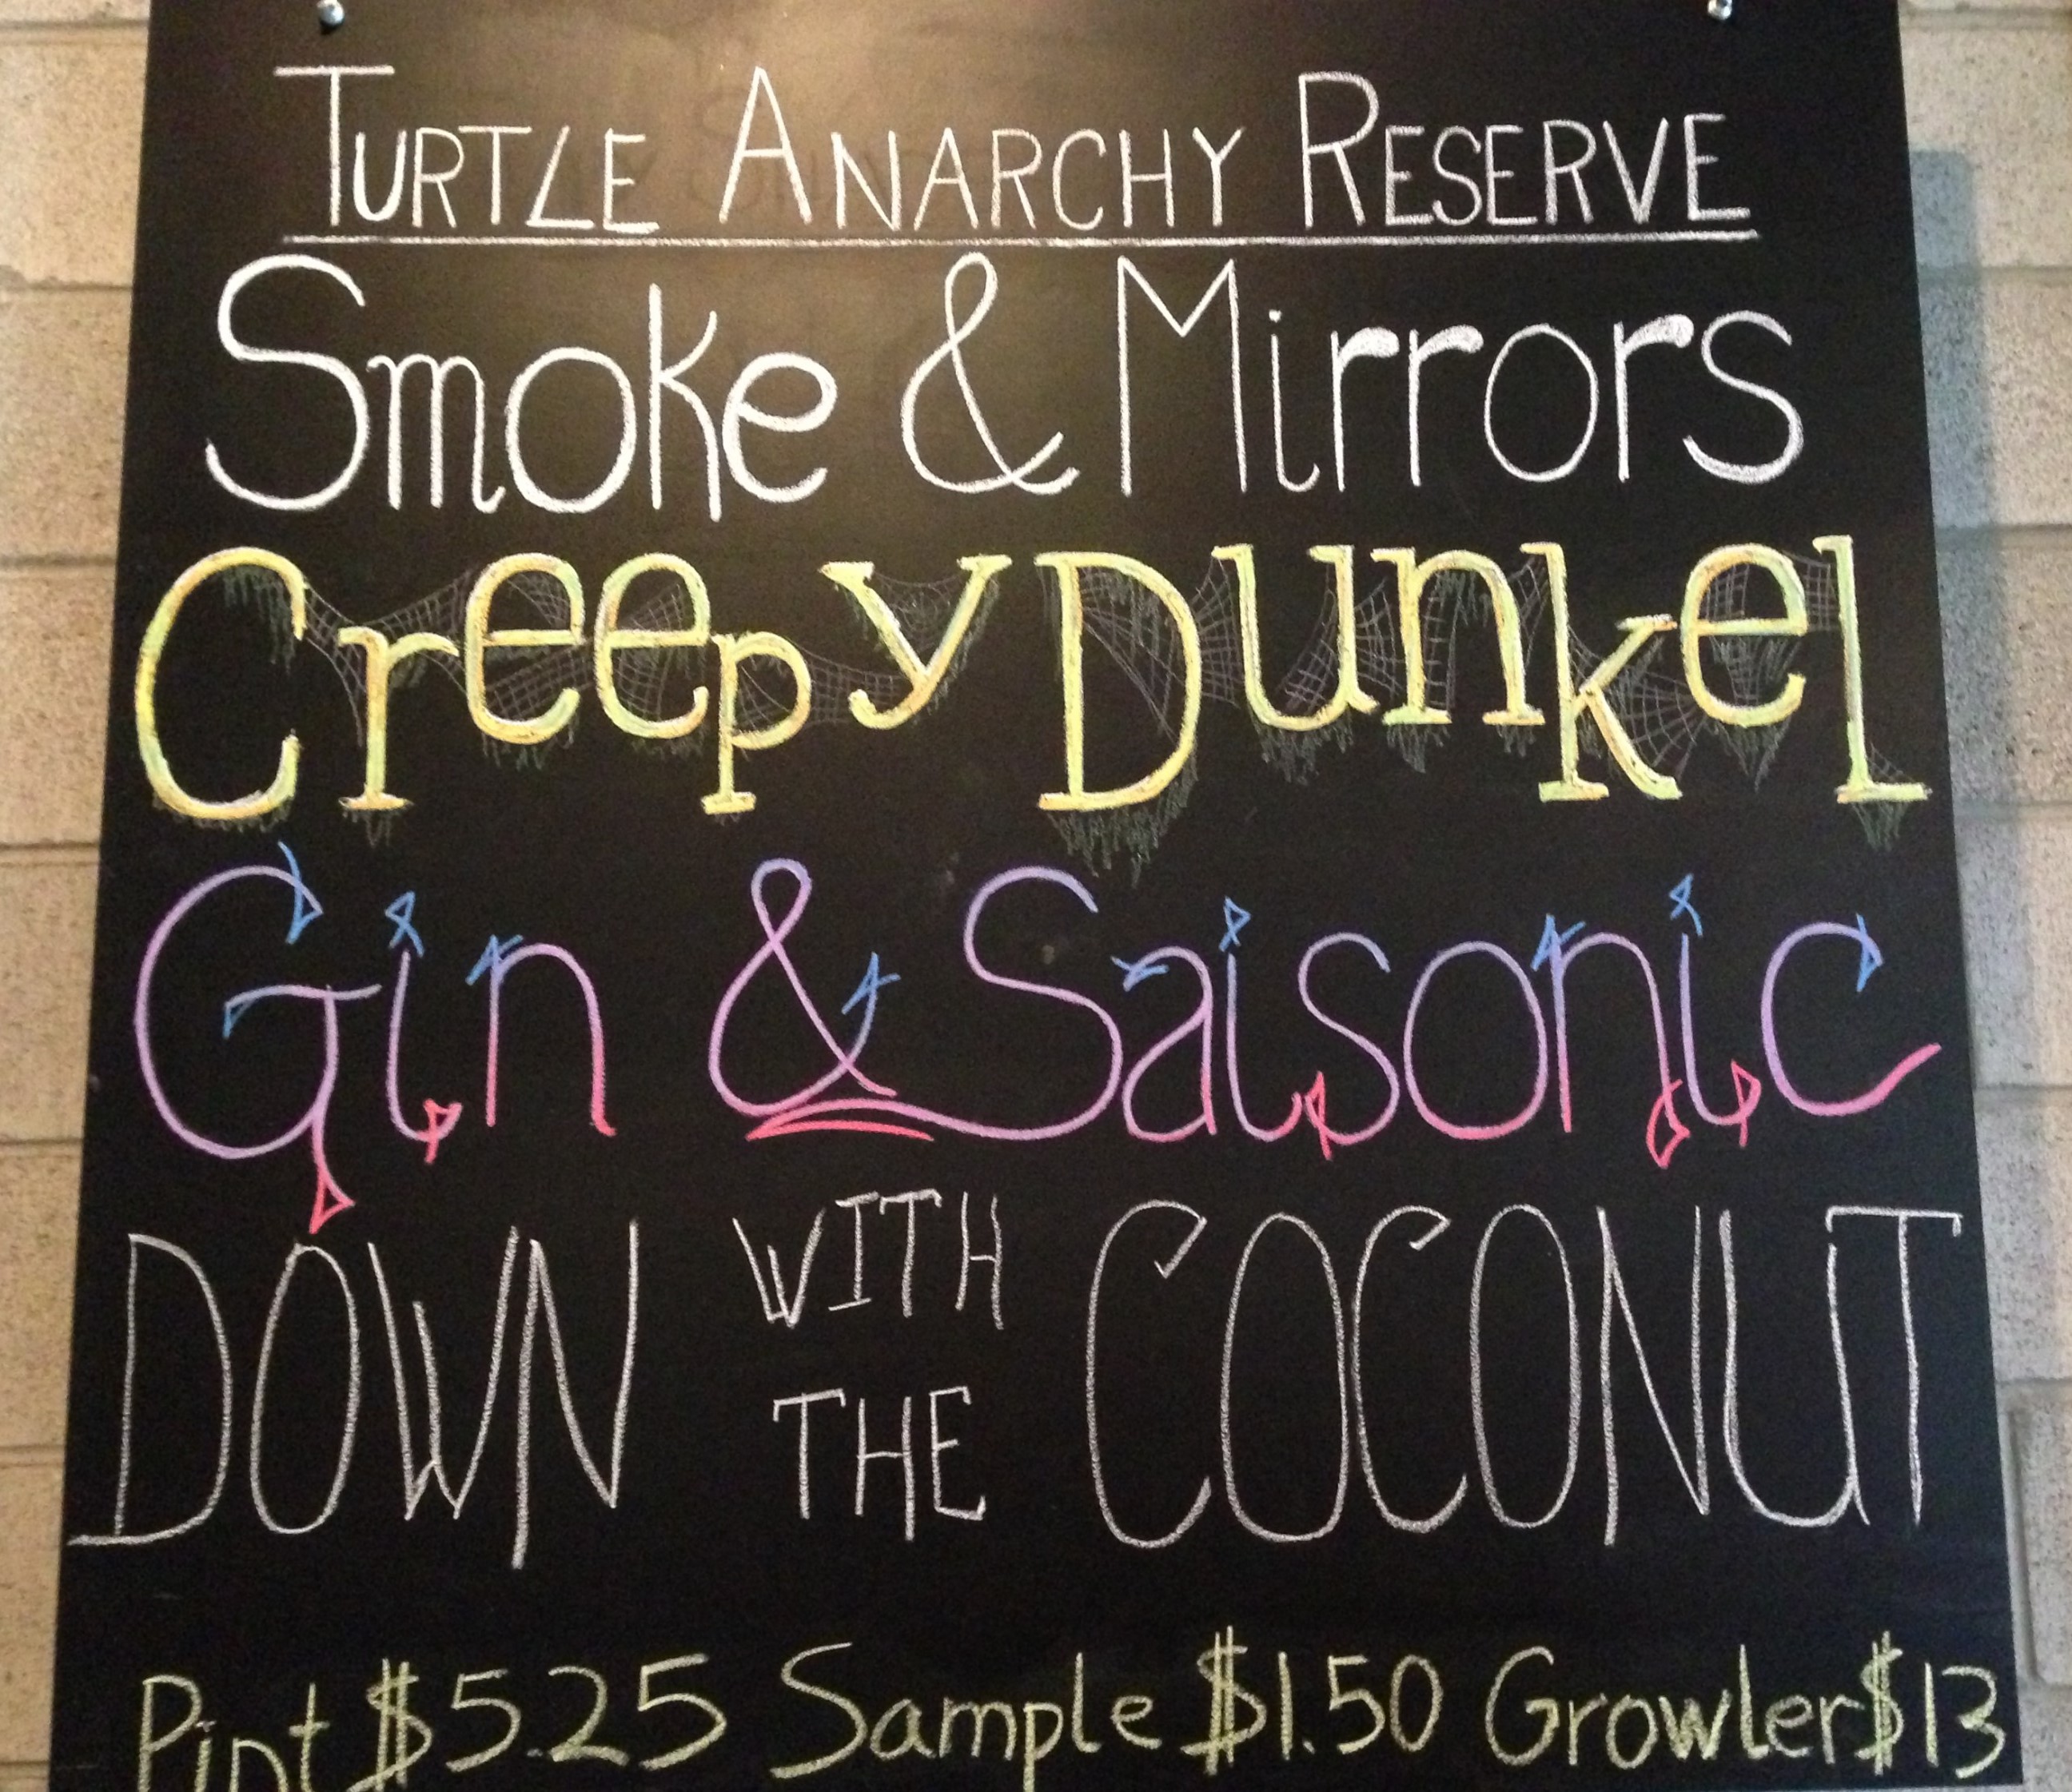 TURTLE ANARCHY RESERVE
Smoke & Mirrors
Creepy Dunkel
Gin & Saisonic
DOWN WITH THE COCONUT
Pint $5.25 Sample $1.50 Growler $13